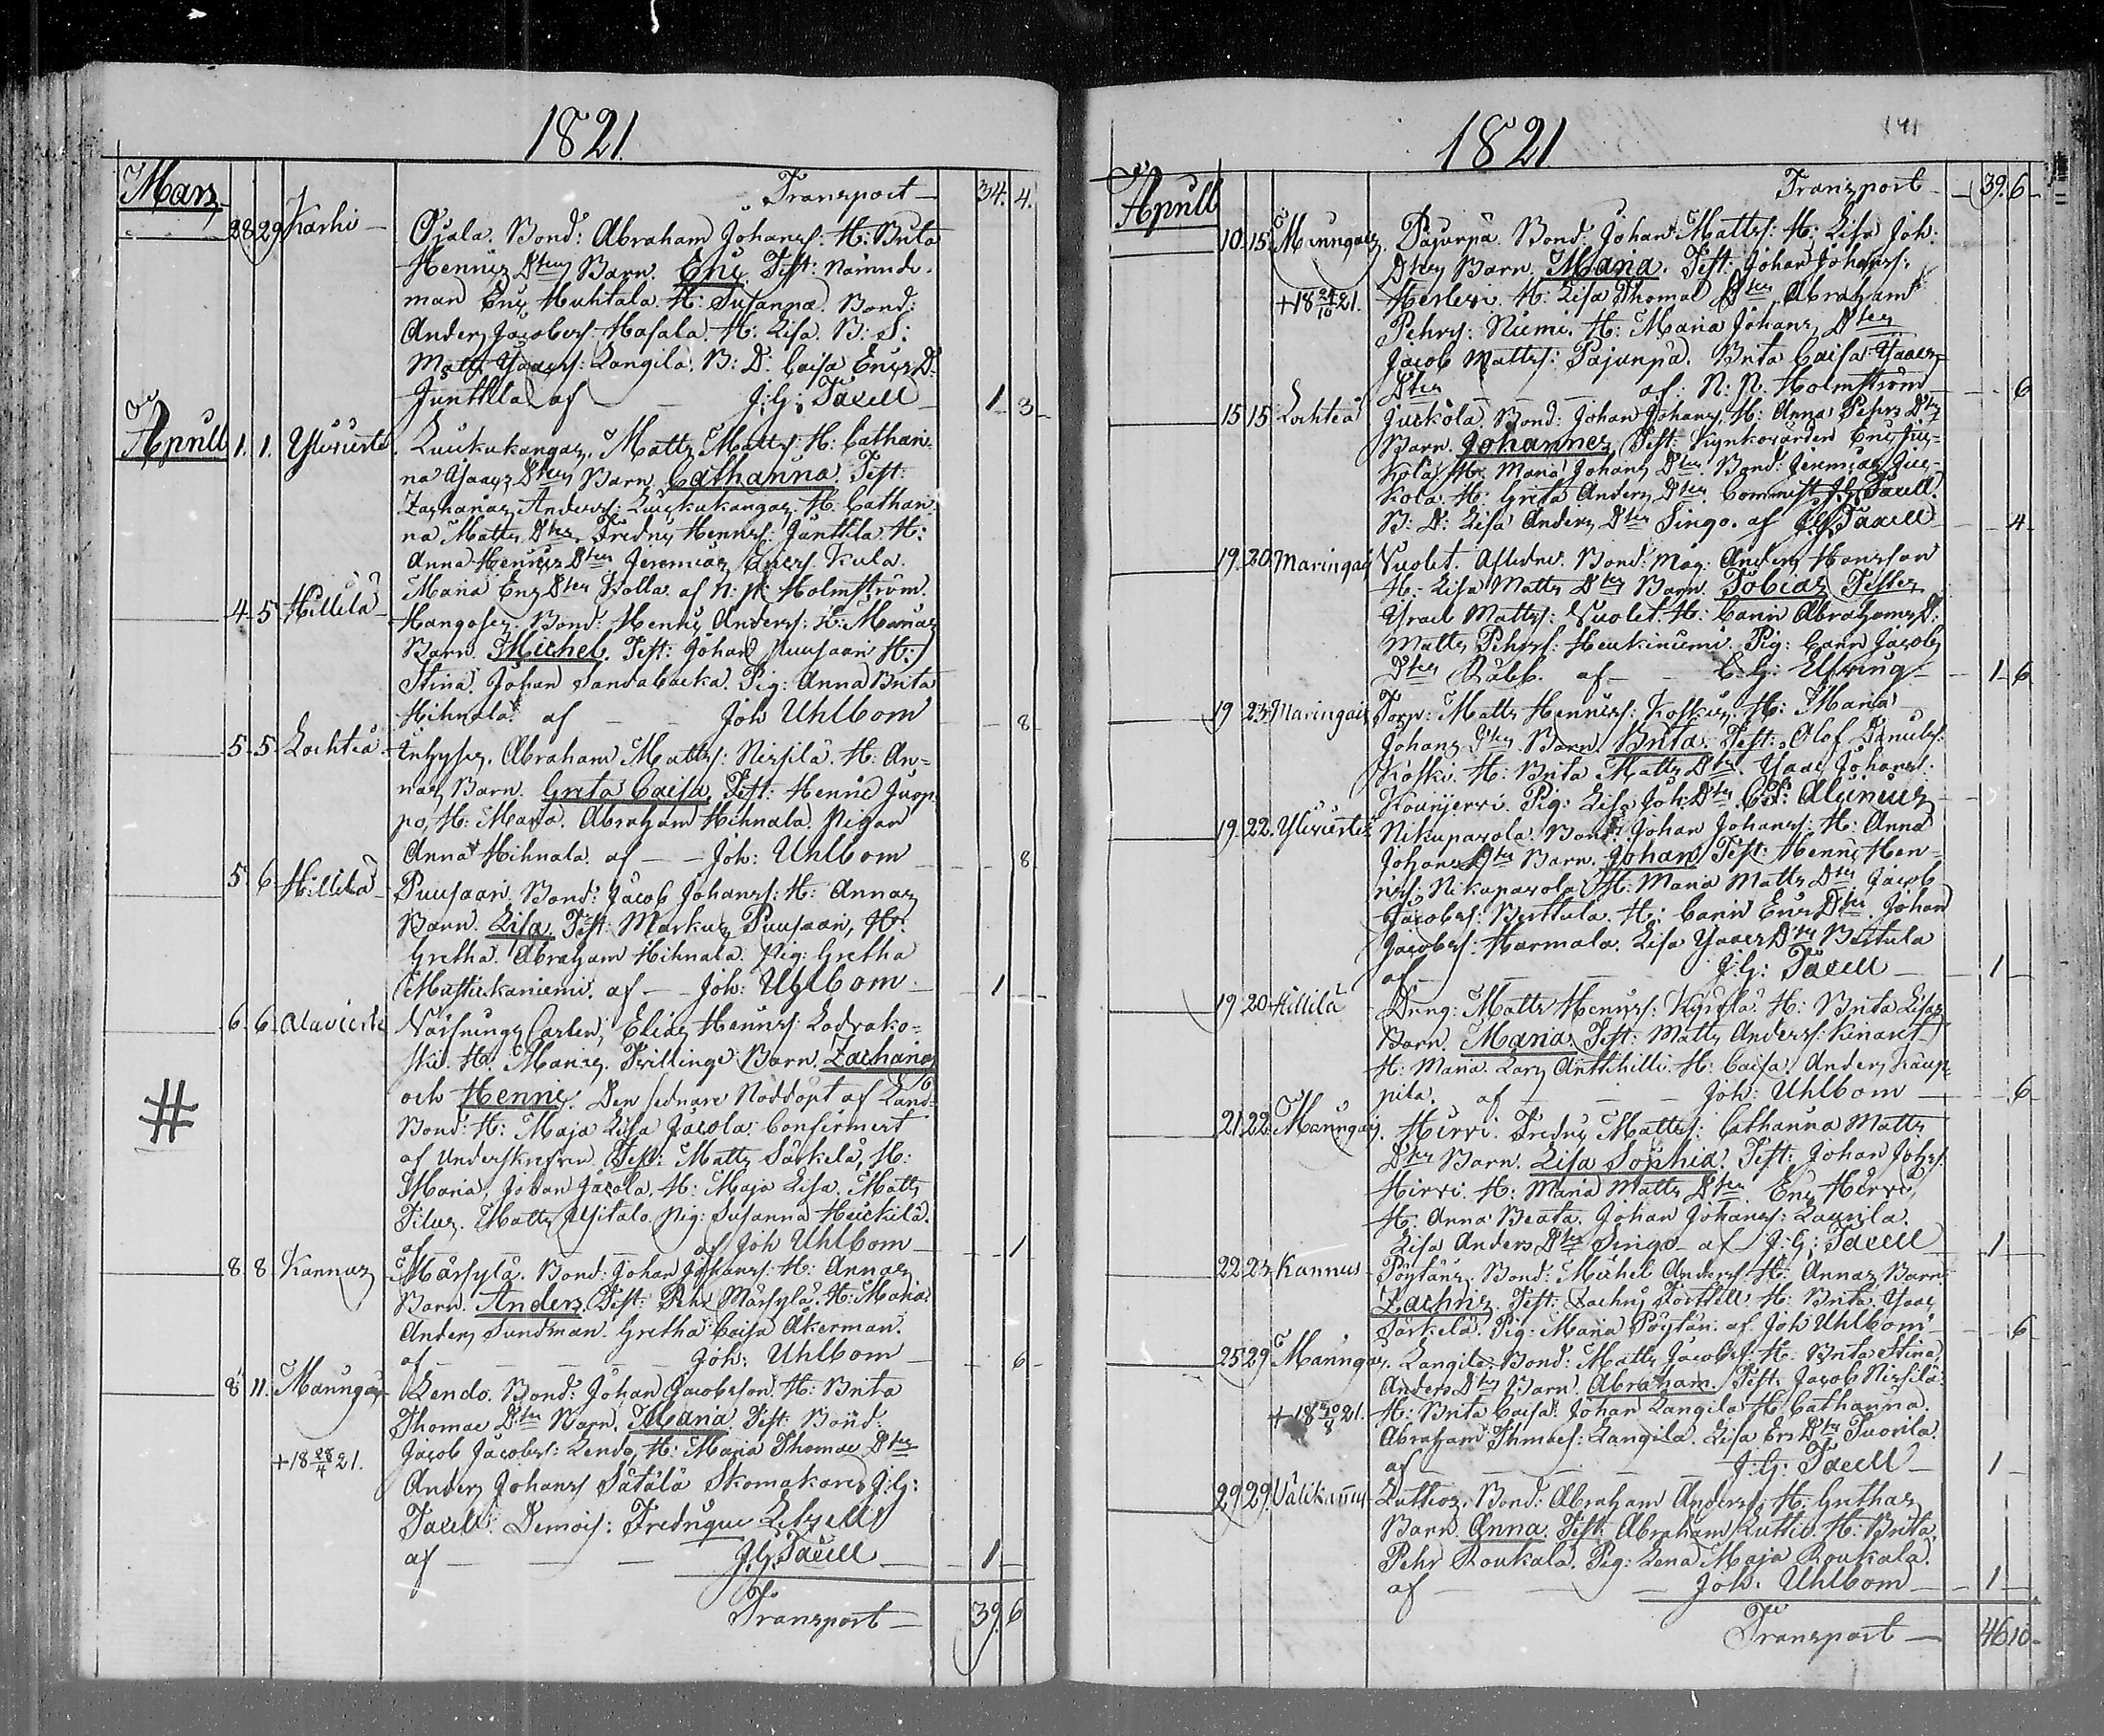 1821.
Mars
Transport — 34. 4.
28 29 Karhi — Ojala. Bond: Abraham Johanss: H: Brita
Henrics Dter Barn. Eric Test: Nämnde-
man Eric Huhtala. H: Susanna. Bond:
Anders Jacobss: Hasala. H: Lisa. B: S:
Matts Isaacss: Langila. B: D: Caisa Erics D:
Junttila af — J: G: Taxell — 1 3
Aprill 1. 1. Ylivieska. Kuukakangas. Matts Mattss: H: Cathari-
na Isaacs Dter Barn. Catharina. Test:
Zacharias Anderss: Kuukakangas. H. Cathari-
na Matts Dter Fredric Henrss: Junttila H:
Anna Henrics Dter Jeremias Ericss. Kula.
Maria Erics Dter Kolla af N: N: Holmström.
4 5 Hillilä — Hangoser. Bond: Henric Anderss: H: Marias
Barn. Michel. Test: Johan Puusaari H:
Stina. Johan Sandabacka. Pig: Anna Brita
Hihnala. af — Joh Uhlbom — 8
5 5 Lochteå. Inhyses. Abraham Mattss: Nissilä. H: An-
nas Barn. Greta Caisa. Test: Henric Juop-
po, H: Maria. Abraham Hihnala. Pigan
Anna Hihnala. af — Joh: Uhlbom — 8
5 6 Hillilä — Puusaari. Bond: Jacob Johanss: H: Annas
Barn. Lisa. Test: Markus Puusaari, H:
Gretha. Abraham Hihnala. Pig: Gretha
Mustickaniemi. af — Joh: Uhlbom. — 1
6. 6. Alavieska Carlen, Elias Henrss:
ski. H: Marias. Tvillinge Barn. Zacharias
och Henric. Den sednare Nöddöpt af Land-
Bond: H: Maja Lisa Jacola. Confirmert
af Underskrefven. Test: Matts Särkelä, H:
Maria, Johan Jacola. H: Maja Lisa. Matts
Tilus. Matts Ypitalo Pig: Susanna Heickilä.
af — af Joh Uhlbom — 1
8 8 Kannus Märsylä. Bond: Johan Johanss: H: Annas
Barn. Anders. Test: Pehr Märsylä. H: Maria.
Anders Sundman. Gretha Caisa Åkerman.
af — Joh: Uhlbom — 6
8 11. Maringais Lendo. Bond: Johan Jacobsson. H: Brita
Thomae Dter Barn. Maria. Test: Bond:
Jacob Jacobss: Lendo, H: Maria Thomae Dter
+18 28/4 21. Anders Johanss Sätälä Skomakare J: G:
Taxell. Demois: Fredrique Litzell
af — J. G. Taxell — 1
Transport — 39. 6
1821
Aprill
Transport — 39. 6
10. 15. Maringais. Pajunpä. Bond: Johan Mattss: H: Lisa Joh:
Dter Barn. Maria. Test: Johan Johanss:
+18 21. Herlevi. H: Lisa Thomae Dter Abraham
Pehrss: Niemi. H: Maria Johans Dter
Jacob Mattss: Pajunpä. Brita Caisa Isaacs
Dter af: N: N. Holmström — 6
15 15 Lochteå Juckola. Bond: Johan Johanss. H: Anna Pehrs Dter
Barn. Johannes. Test: Kyrkovärden Eric Juc-
kola. H: Maria Johans Dter Bond: Jeremias Juc-
kola. H: Greta Anders Dter. Commist. J: G: Taxell.
B: D: Lisa Anders Dter Singo. af J: G: Taxell — 4
19. 20. Maringais Vuolet. Afledne. Bond: Mag: Anders Hansson
H: Lisa Matts Dter Barn. Tobias Testes
Israel Mattss: Vuolet. H: Carin Abrahams D:
Matts Pehrss: Heukiniemi. Pig: Carin Jacobs
Dter Rabb. af — C. G: Elfving — 1 6
19 23 Maringais Torp: Matts Henrss: Koskus. H: Maria
Johans Dter Barn. Brita. Test: Olof Danielss.
Koski. H: Brita Matts Dter. Isaac Johanss.
Kounjervi. Pig: Lisa Joh: Dter. Alcenius
19. 22. Ylivieska Nikuparola. Bond: Johan Johanss: H: Anna
Johans Dter Barn. Johan. Test: Henric Hen-
rss: Nikuparola. H: Maria Matts Dter Jacob
Jacobss: Buttula. H: Carin Erics Dter. Johan
Jacobss. Harmala. Lisa Isaacs Dter Buttula
af — J: G: Taxell — 1
19 20 Hillilä Dreng: Matts Henrss: Kyrölä. H: Brita Lisas
Barn. Maria. Test: Matts Anderss: Kinaret
H: Maria. Lars Anttihilli. H: Caisa. Anders Kaup-
pila. af — Joh: Uhlbom — 6
21. 22. Maringais. Hirvi. Fredric Mattss: Catharina Matts
Dter Barn. Lisa Sophia. Test: Johan Johss.
Hirvi. H: Maria Matts Dter. Eric Hirvi,
H: Anna Beata. Johan Johanss: Laurila.
Lisa Anders Dter Singo — af J: G: Taxell — 1
22 23 Kannus Pöytäns. Bond: Michel Anderss: H: Annas Barn.
Zachris. Test: Zachris Torthell. H: Brita. Isaac
Särkelä. Pig: Maria Pöytän. af Joh Uhlbom — 6
25 29 Maringais. Langila. Bond: Matts Jacobss: H: Brita Stina
Anders Dter Barn. Abraham. Test. Jacob Nissilä.
+18 21. H: Brita Caisa. Johan Langila H: Catharina.
Abraham Thomaes: Langila. Lisa Ers Dter Tuorila.
af — J: G: Taxell — 1
29 29. Välikannus Luttios. Bond: Abraham Anderss: H: Grethas
Barn. Anna. Test: Abraham Luttio. H: Brita.
Pehr Roukala. Pig: Lena Maja Roukala.
af — Joh. Uhlbom — 1
Transport — 46 10